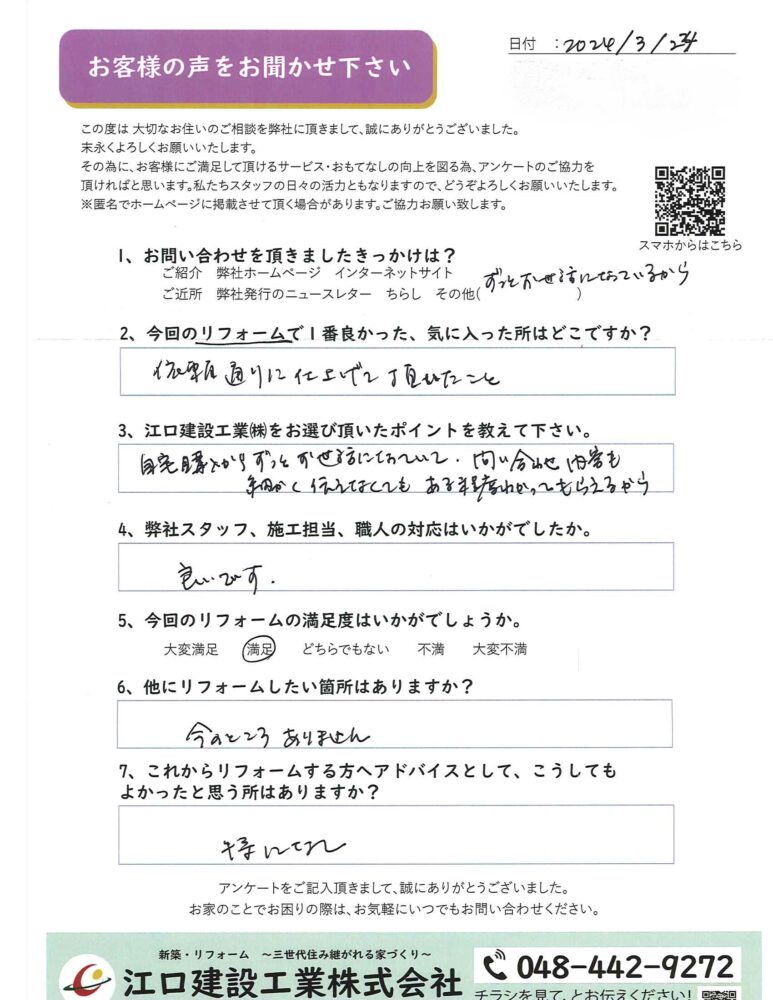 お客様の声をお聞かせ下さい
日付 : 2024/3/24
この度は 大切なお住いのご相談を弊社に頂きまして、誠にありがとうございました。
末永くよろしくお願いいたします。
その為に、お客様にご満足して頂けるサービス・おもてなしの向上を図る為、アンケートのご協力を
頂ければと思います。私たちスタッフの日々の活力ともなりますので、どうぞよろしくお願いいたします。
※匿名でホームページに掲載させて頂く場合があります。ご協力お願い致します。
スマホからはこちら
1、お問い合わせを頂きましたきっかけは?
ご紹介 弊社ホームページ インターネットサイト
ご近所 弊社発行のニュースレター ちらし その他( ずっとお世話になっているから )
2、今回のリフォームで1番良かった、気に入った所はどこですか?
依頼通りに仕上げて頂いたこと
3、江口建設工業㈱をお選び頂いたポイントを教えて下さい。
自宅購入からずっとお世話になっていて、問い合わせ内容も
細かく伝えなくてもある程度わかってもらえるから
4、弊社スタッフ、施工担当、職人の対応はいかがでしたか。
良いです.
5、今回のリフォームの満足度はいかがでしょうか。
大変満足 満足 どちらでもない 不満 大変不満
6、他にリフォームしたい箇所はありますか?
今のところありません
7、これからリフォームする方へアドバイスとして、こうしても
よかったと思う所はありますか?
特になし
アンケートをご記入頂きまして、誠にありがとうございました。
お家のことでお困りの際は、お気軽にいつでもお問い合わせください。
新築・リフォーム ～三世代住み継がれる家づくり～
江口建設工業株式会社
048-442-9272
チラシを見て、とお伝えください!